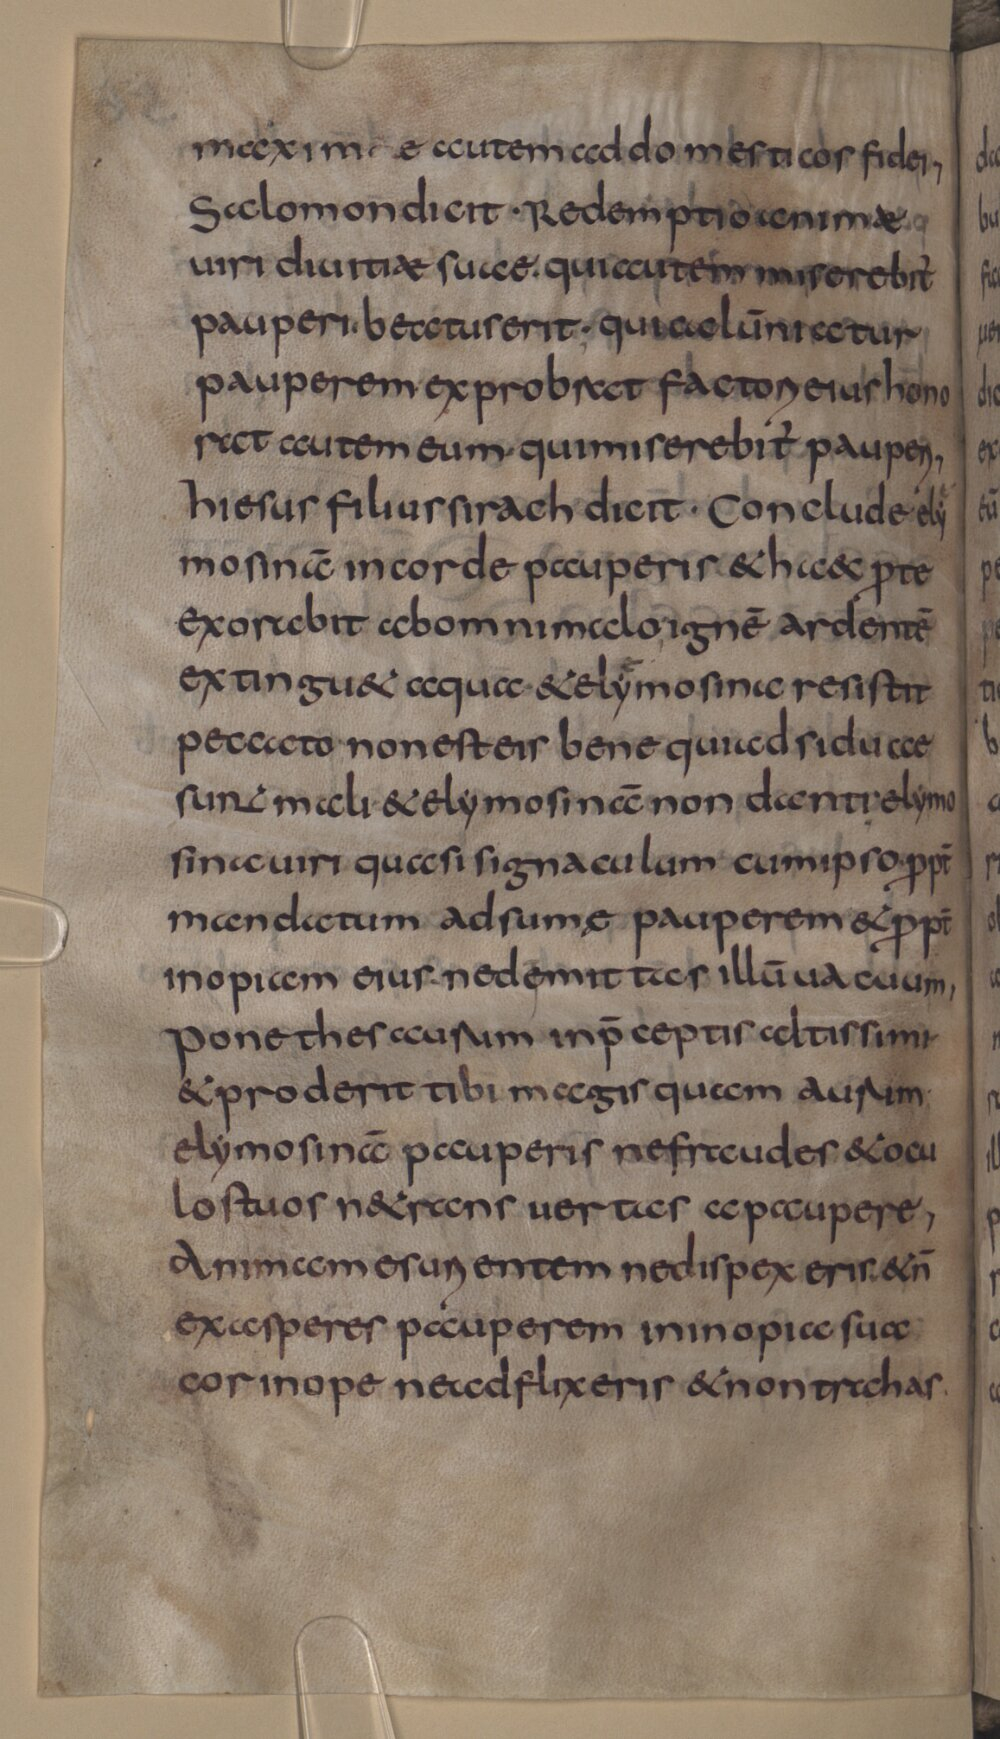 maxim e autem ad domesticos fidei,
Salomon dicit · Redemptio animæ
uiri diuitiæ suae. qui autem miserebit̄
pauperi. beatus erit · qui calūniatur
pauperem exprobrat factori eius hono
rat autem eum. qui miserebit̄ pauperi,
hiesus filius sirach dicit · Conclude ely
mosinā in corde pauperis & haec p̄ te
exorabit ab omni malo, ignē ardentē
extinguet aqua & elymosina resistit
peccato non est eis bene qui adsidu ae
sunt mali & elymosinā non danti elymo
sina uiri quasi signaculum cum ipso. ppt̄
mandatum adsume pauperem & ppt̄
inopiam eius. ne demittas illū uacuum,
Pone thesaurum in p̄ceptis altissimi
& proderit tibi magis quam aurum
elymosinā pauperis ne fraudes & ocu
los tuos ne trans uertas a paupere,
Animam esurientem ne dispexeris. & ñ
exasperes pauperem in inopia sua
cor inope ne adflixeris & non trahas.